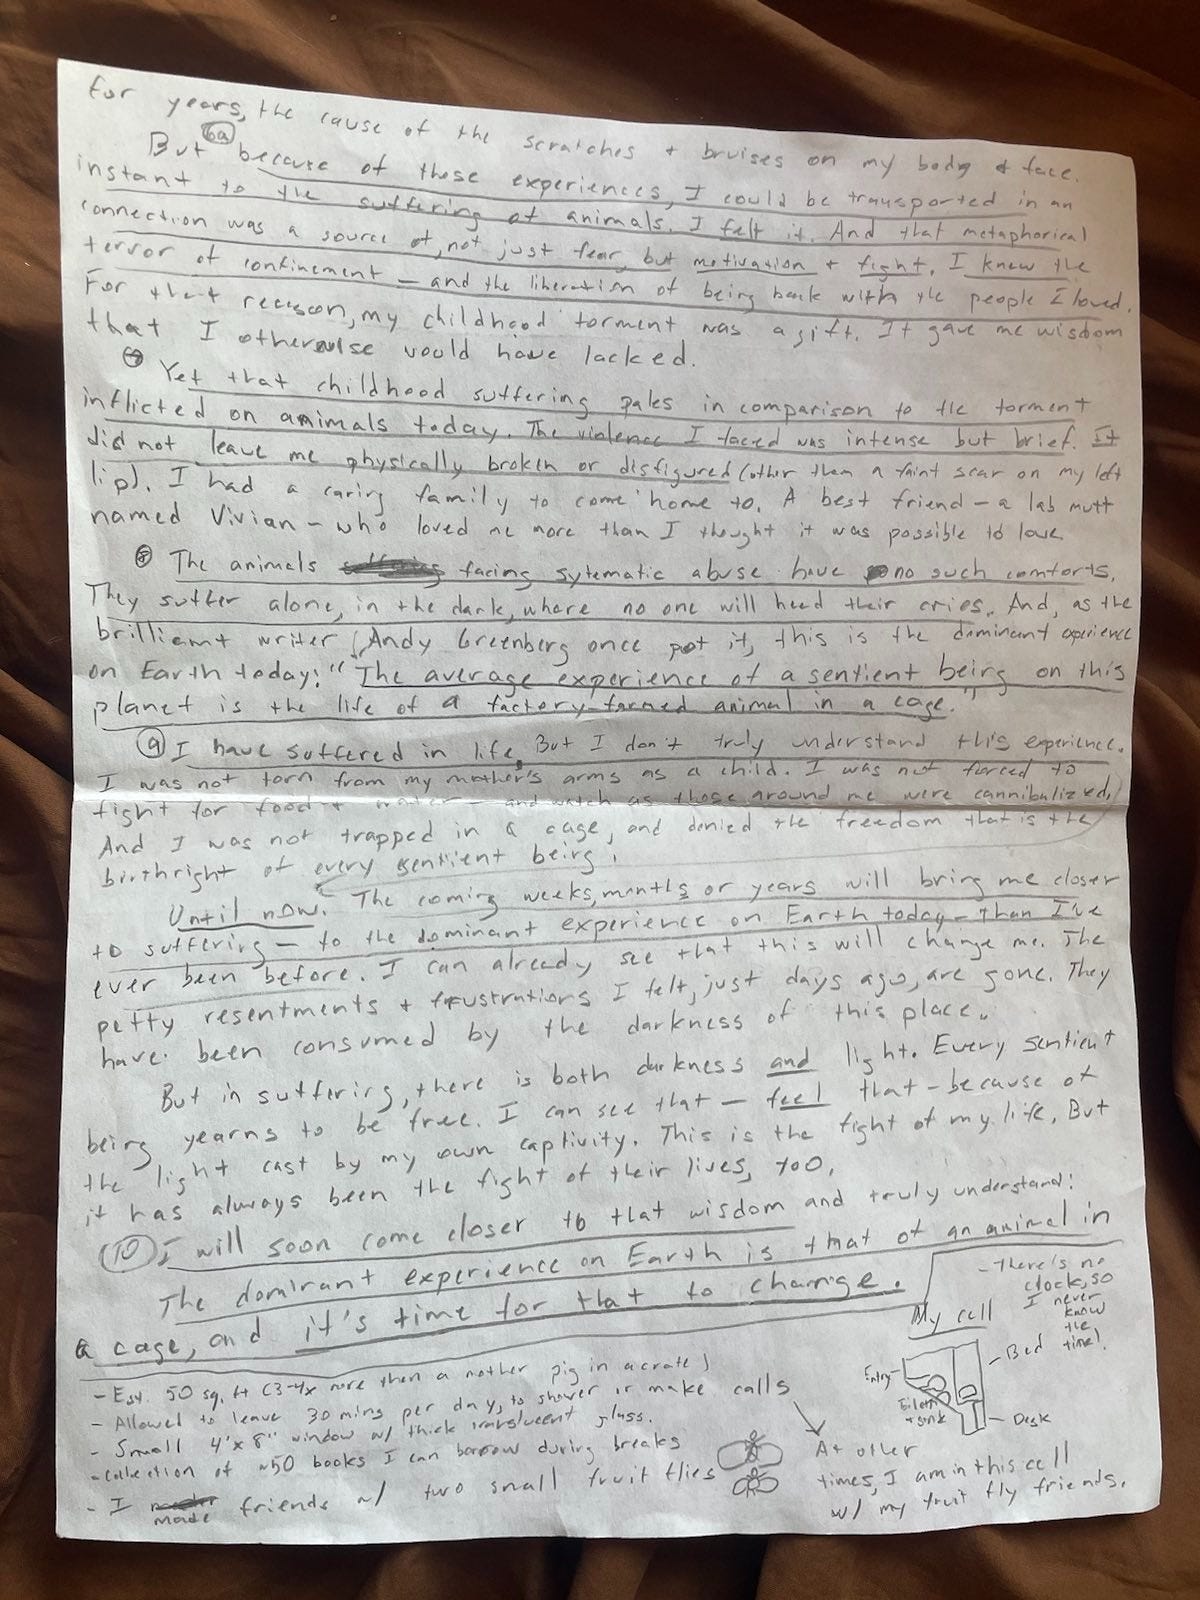 for years, the cause of the scratches + bruises on my body & face.
6a
But because of those experiences, I could be transported in an
instant to the suffering of animals. I felt it. And that metaphorical
connection was a source of, not just fear, but motivation + fight. I knew the
terror of confinement — and the liberation of being back with the people I loved.
For that reason, my childhood torment was a gift. It gave me wisdom
that I otherwise would have lacked.
7 Yet that childhood suffering pales in comparison to the torment
inflicted on animals today. The violence I faced was intense but brief. It
did not leave me physically broken or disfigured (other than a faint scar on my left
lip). I had a caring family to come home to. A best friend — a lab mutt
named Vivian — who loved me more than I thought it was possible to love.
8 The animals facing sytematic abuse have no such comforts.
They suffer alone, in the dark, where no one will heed their cries. And, as the
brilliant writer Andy Greenberg once put it, this is the dominant experience
on Earth today: "The average experience of a sentient being on this
planet is the life of a factory-farmed animal in a cage."
9 I have suffered in life. But I don't truly understand this experience.
I was not torn from my mother's arms as a child. I was not forced to
fight for food + water — and watch as those around me were cannibalized.
And I was not trapped in a cage, and denied the freedom that is the
birthright of every sentient being.
Until now. The coming weeks, months or years will bring me closer
to suffering — to the dominant experience on Earth today — than I've
ever been before. I can already see that this will change me. The
petty resentments + frustrations I felt, just days ago, are gone. They
have been consumed by the darkness of this place.
But in suffering, there is both darkness and light. Every sentient
being yearns to be free. I can see that — feel that — because of
the light cast by my own captivity. This is the fight of my life. But
it has always been the fight of their lives, too.
10 I will soon come closer to that wisdom and truly understand:
The dominant experience on Earth is that of an animal in
a cage, and it's time for that to change.
- Est. 50 sq. ft (3-4x more than a mother pig in a crate)
- Allowed to leave 30 mins per day, to shower or make calls
- Small 4'x 8" window w/ thick translucent glass.
- collection of ~50 books I can borrow during breaks
- I made friends w/ two small fruit flies
At other
times, I am in this cell
w/ my fruit fly friends.
My cell
Entry
Bed
Toilet
+ sink
Desk
- There's no
clock, so
I never
know
the
time!